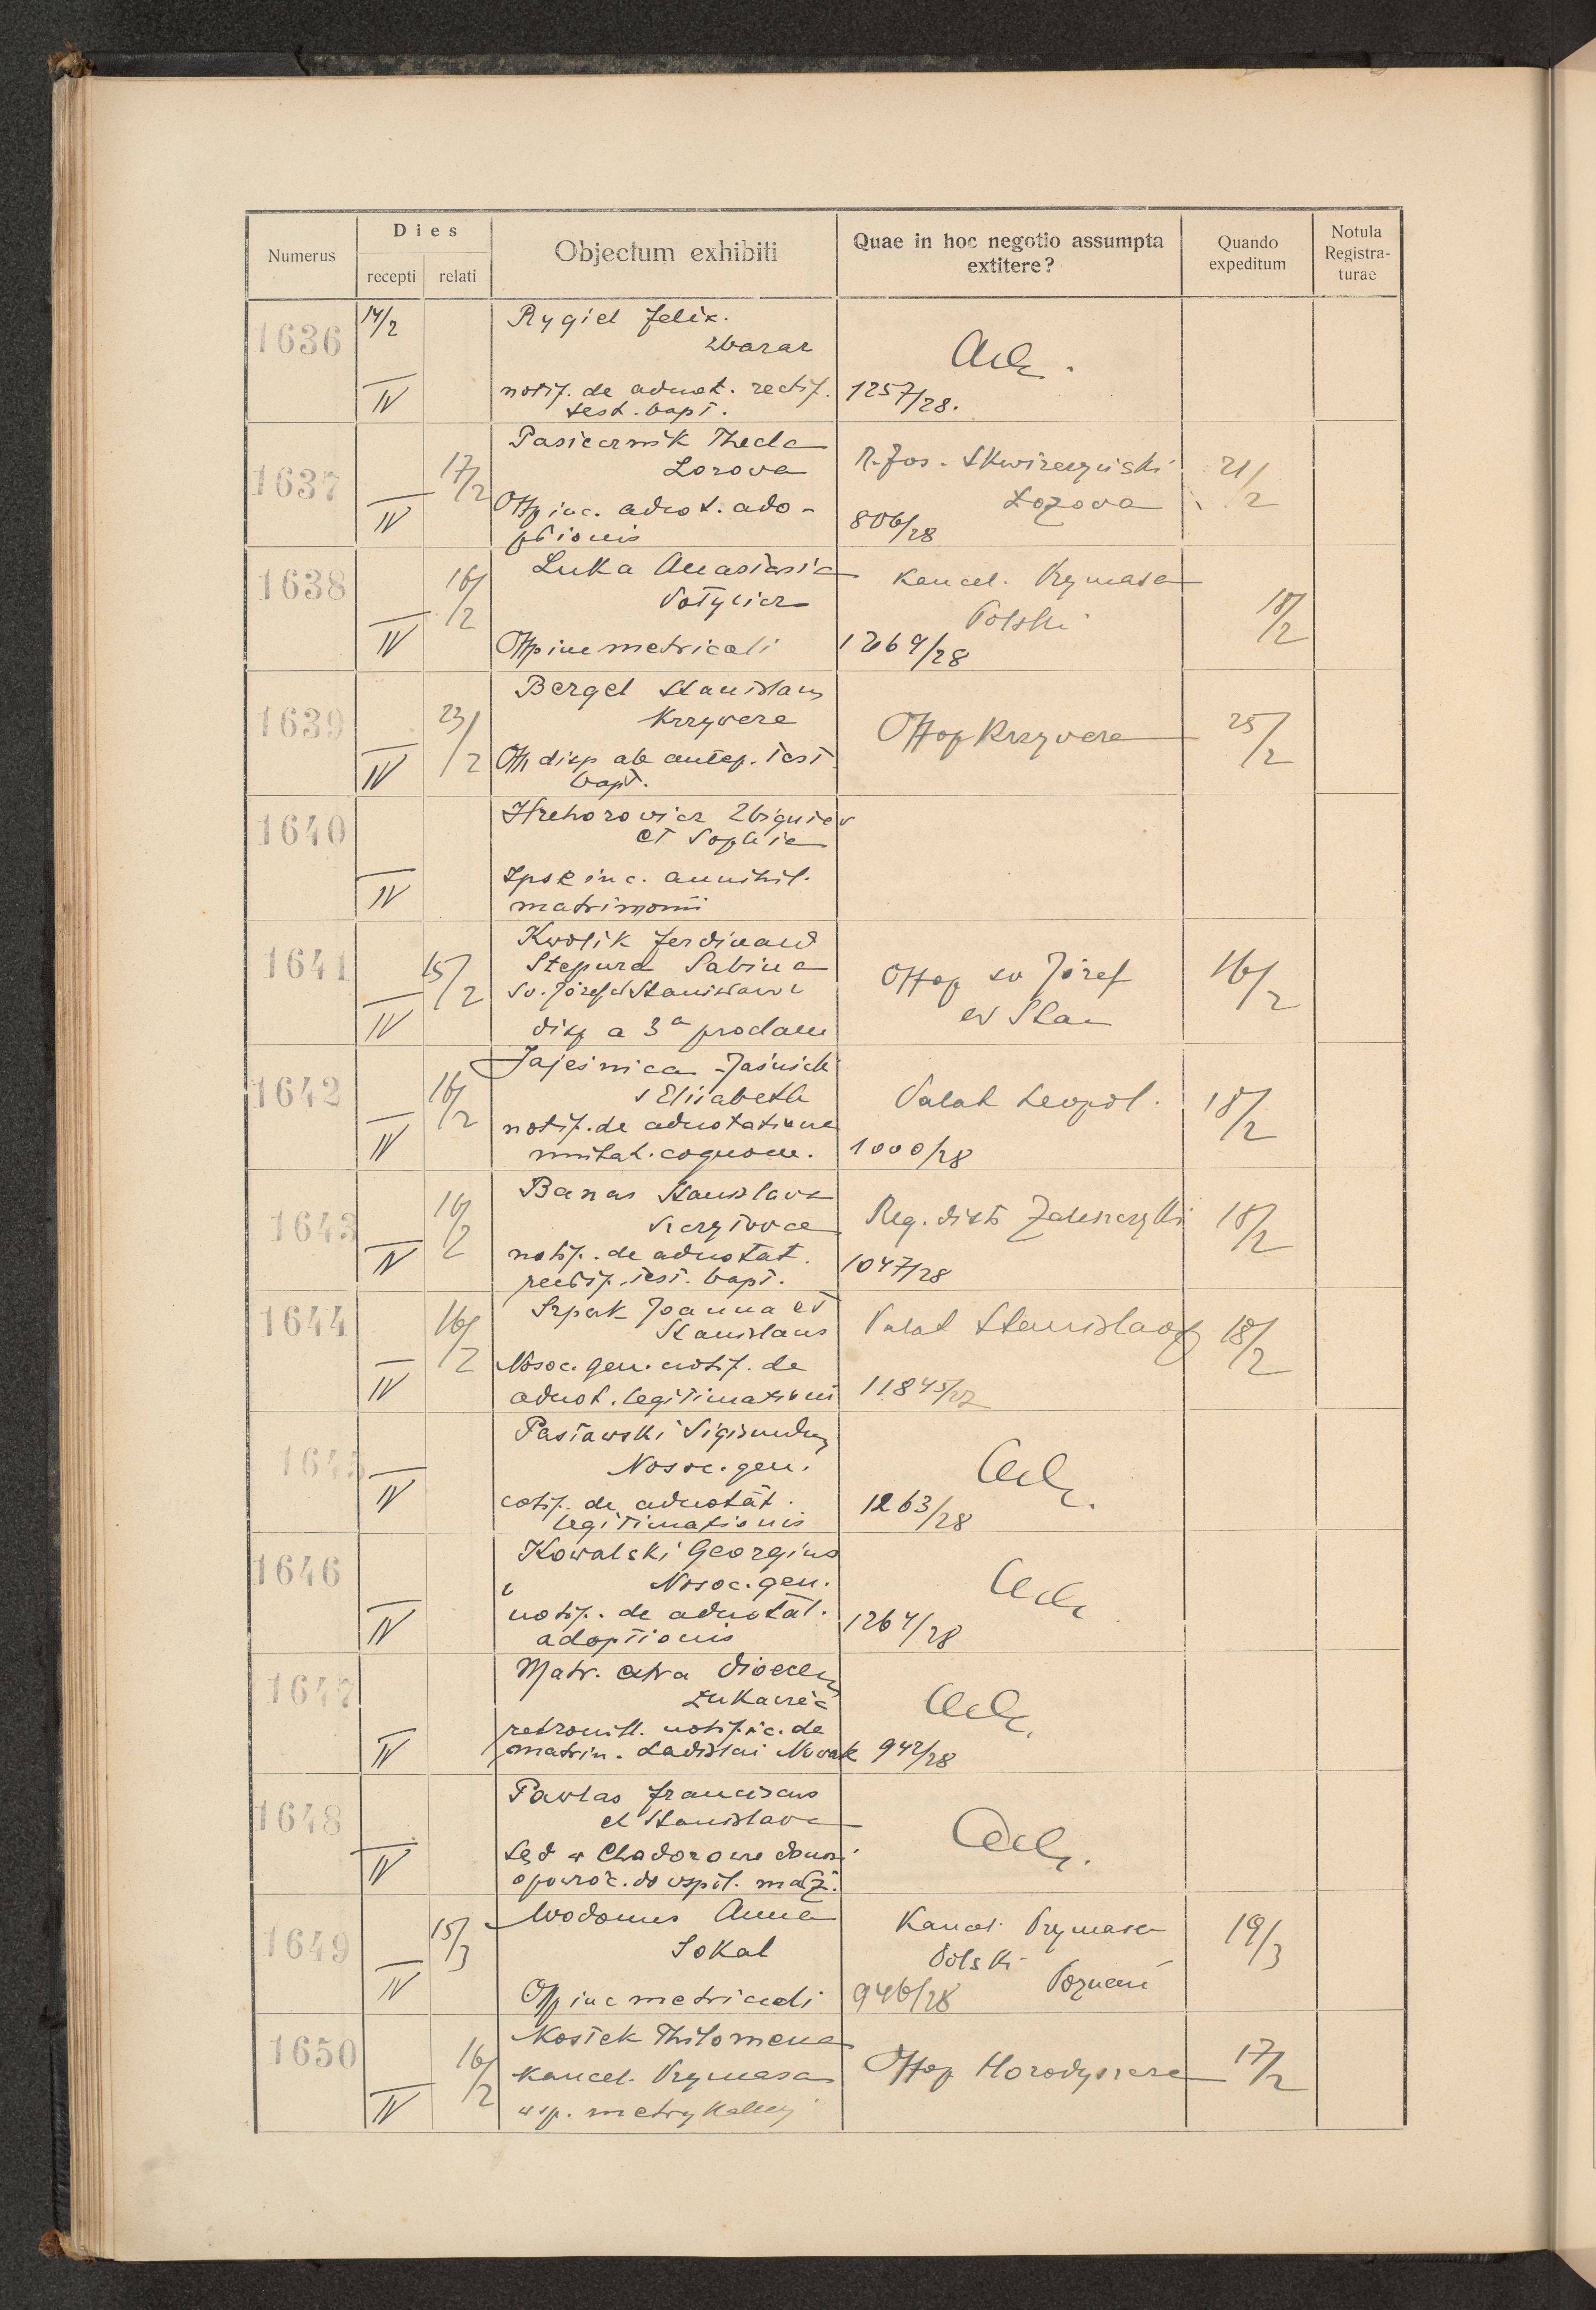 Numerus
Dies
recepti relati
Objectum exhibiti
Quae in hoc negotio assumpta
extitere?
Quando
expeditum
Notula
Registra-
turae
1636 14/2 IV
Rygiel Felix.
Zbaraż
notif. de adnot. rectif.
test. bapt.
1257/28.
1637 IV 17/2
Pasiecznik Thecla
Łozowa
Offp inc. adnot. ado-
ptionis
R. Jos. Skwireczyński
Łozova
806/28
21/2
1638 IV 16/2
Luka Anastasia
Potylicz
Offp inc metricali
Kancel. Prymasa
Polski
1269/28
18/2
1639 IV 23/2
Bergel Stanislaus
Krzywcze
Off disp ab antep. test
bapt.
Offop Krzywcze
25/2
1640 IV
Hrehorowicz Zbigniew
et Sophia
Ipse inc. annihil.
matrimonii
1641 IV 15/2
Kwolik Ferdinand
Stepura Sabina
św. Józef et Stanisławów
disp a 3a proclam
Offop św Józef
et Stan
16/2
1642 IV 16/2
Jajeśnica - Jaśnicki
Elisabeth
notif. de adnotatione
mutat. cognom.
Palat Leopol.
1000/28
18/2
1643 IV 16/2
Banas Stanislava
notif. de adnotat.
rectif. test. bapt.
Reg. distr Zaleszczyki
1047/28
18/2
1644 IV 16/2
Szpak Joanna et
Stanislaus
Nosoc. gen. notif. de
adnot. legitimationis
Palat Stanislaop
11845/27
18/2
1645 IV
Pasławski Sigismundus
Nosoc. gen.
notif. de adnotat.
legitimationis
1263/28
1646 IV
Kowalski Georgius
Nosoc. gen.
notif. de adnotat.
adoptionis
1264/28
1647 IV
Matr. extra dioecesim
Łukawiec
notific. de
matrim. Ladislai Nowak
942/28
1648 IV
Pawlas Franciscus
et Stanislava
Sąd w Chodorowie donosi
o powróc. do wspól. małż.
1649 IV 15/3
Wodomus Anna
Sokal
Offp inc metricali
Kancel. Prymasa
Polski
Poznań
946/28
19/3
1650 IV 16/2
Kostek Philomena
Kancel. Prymasa
w sp. metrykalnej
Offop Horodyszcze
17/2